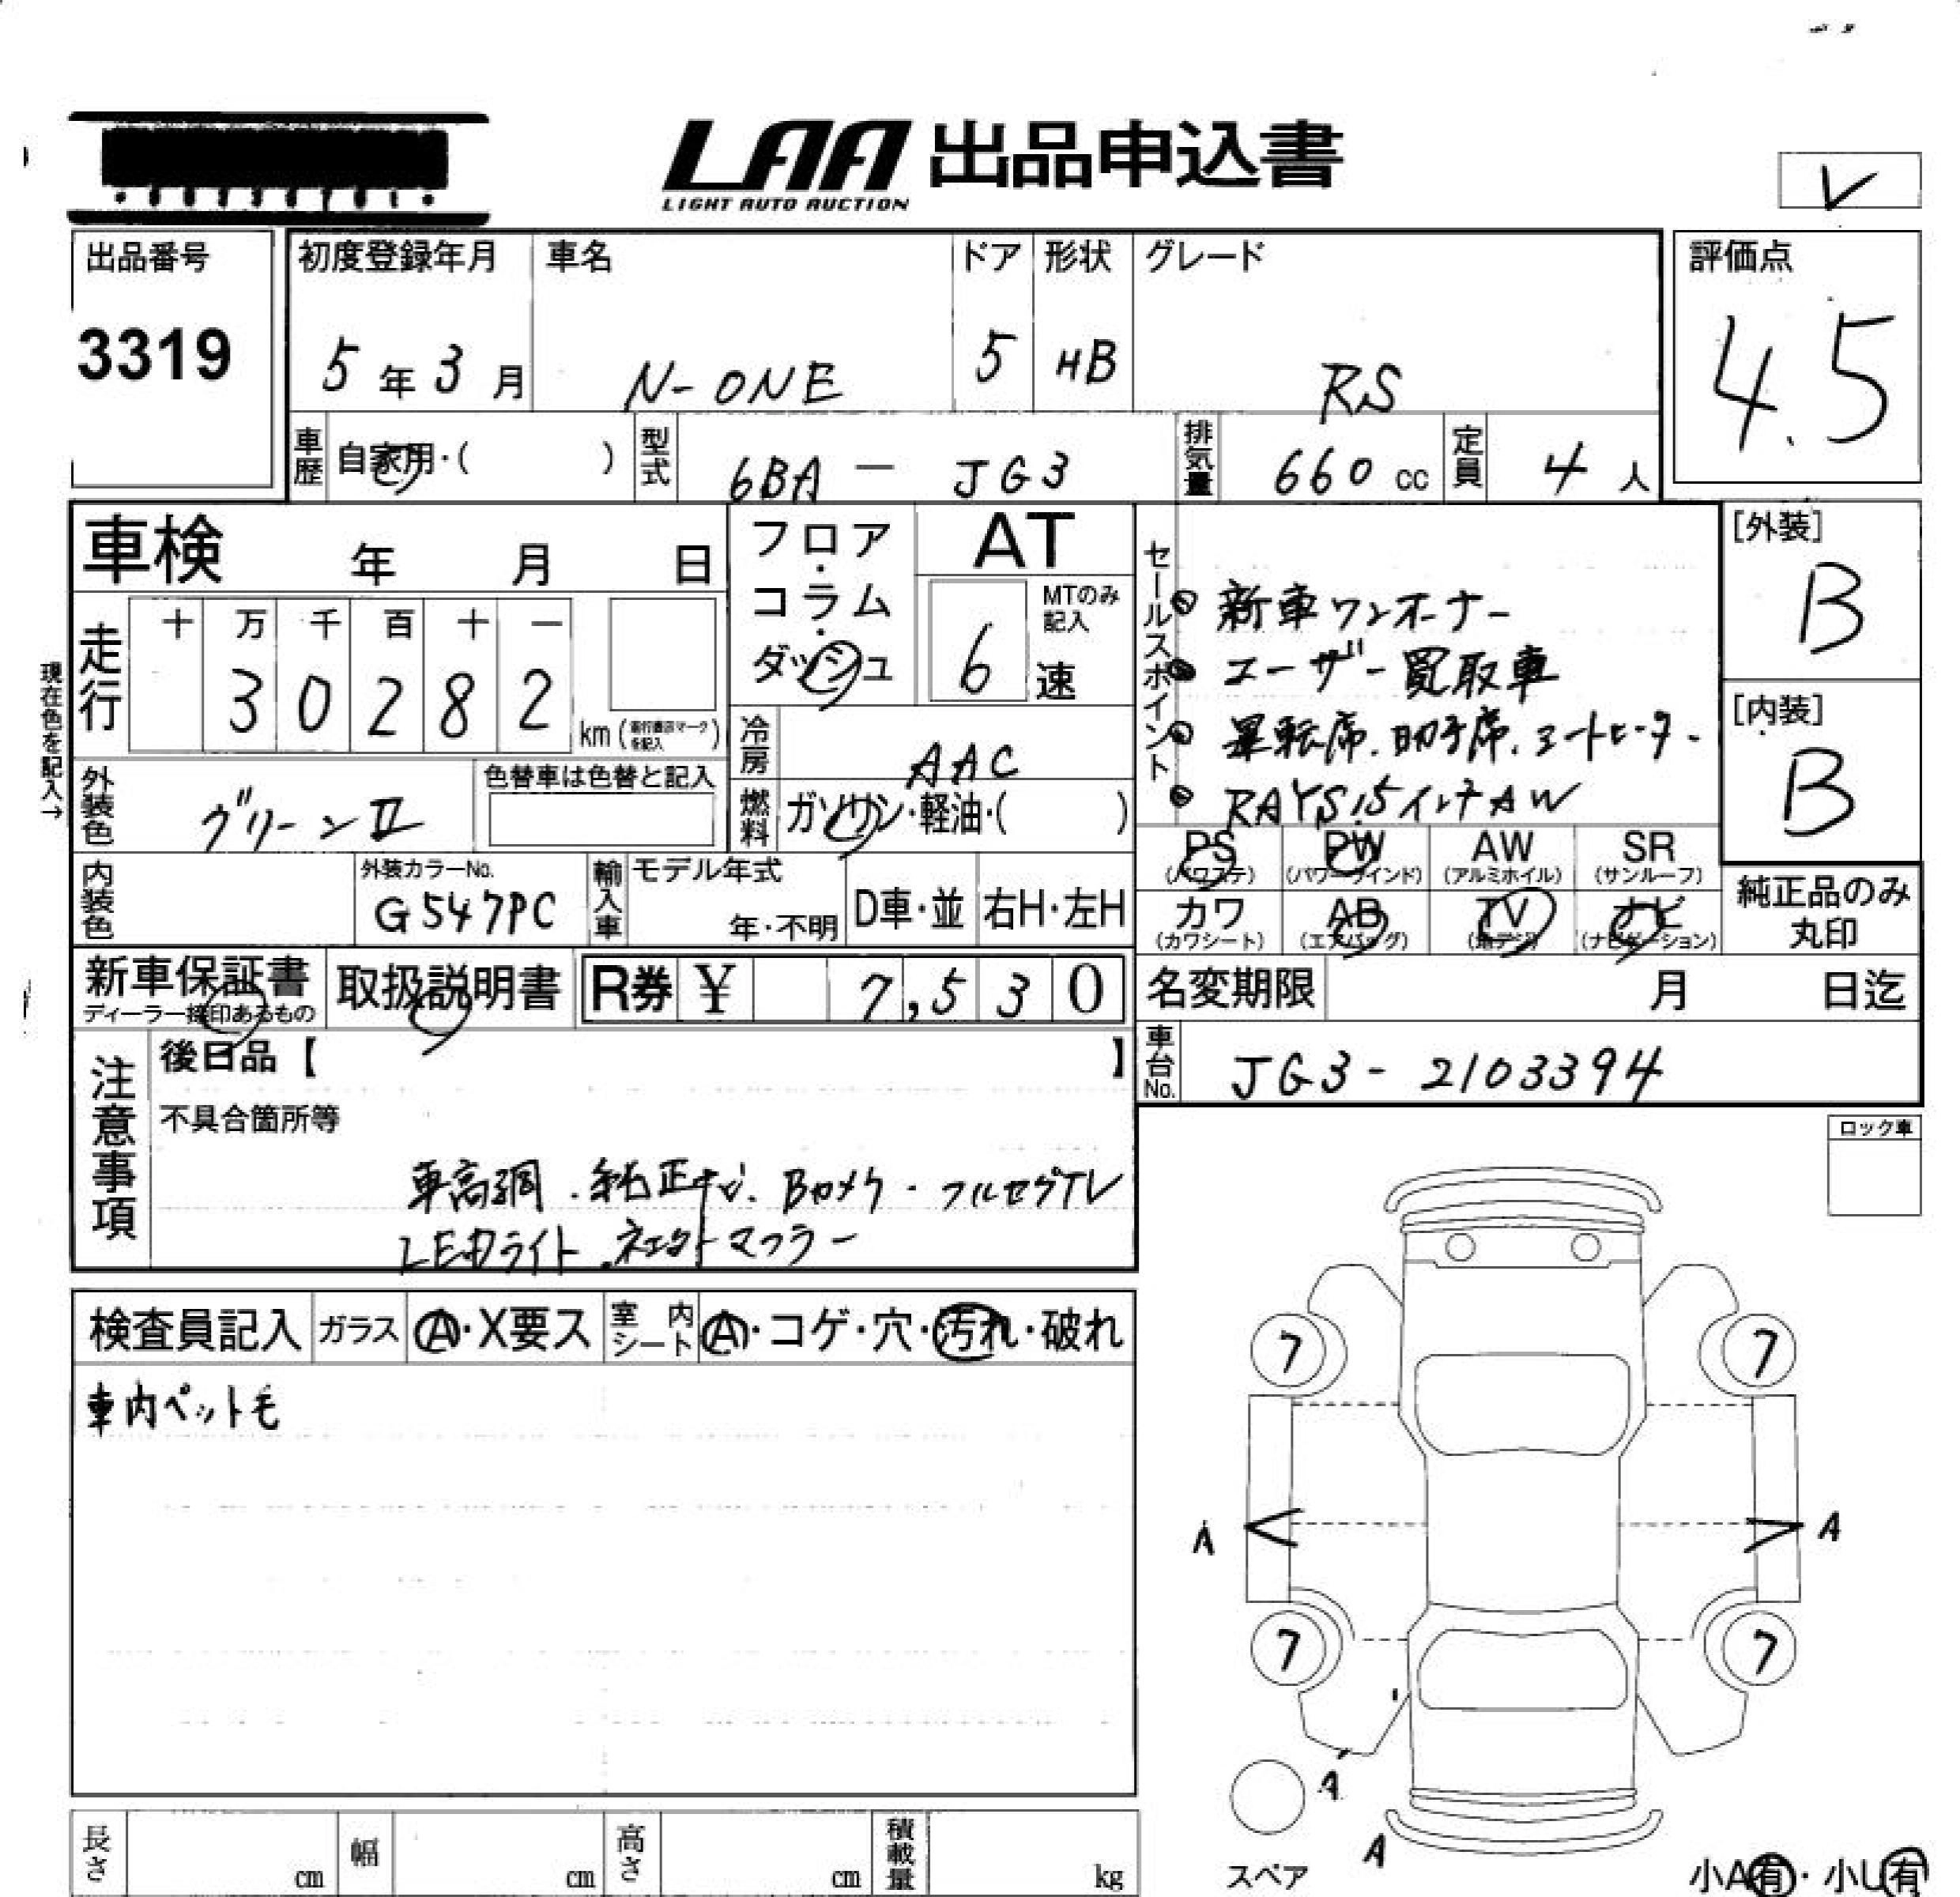 LAA 出品申込書
LIGHT AUTO AUCTION
出品番号
3319
初度登録年月
5年3月
車名
N-ONE
ドア
5
形状
HB
グレード
RS
評価点
4.5
車歴
自家用・( )
型式
6BA - JG3
排気量
660 cc
定員
4人
車検 年 月 日
走行
十 万 千 百 十 一
3 0 2 8 2 km
現在色を記入→
外装色
グリーンⅡ
色替車は色替と記入
内装色
外装カラーNo.
G547PC
輸入車
モデル年式
年・不明
D車・並
右H・左H
フロア・コラム・ダッシュ
AT
MTのみ記入
6速
冷房
AAC
燃料
ガソリン・軽油・( )
セールスポイント
新車ワンオーナー
ユーザー買取車
運転席.助手席.シートヒーター
RAYS15インチAW
[外装]
B
[内装]
B
PS (パワステ)
PW (パワーウインド)
AW (アルミホイル)
SR (サンルーフ)
カワ (カワシート)
AB (エアバッグ)
TV (地デジ)
ナビ (ナビゲーション)
純正品のみ丸印
新車保証書
ディーラー捺印あるもの
取扱説明書
R券 ¥ 7,530
名変期限 月 日迄
車台No.
JG3-2103394
注意事項
後日品【 】
不具合箇所等
車高調.純正ナビ.Bカメラ.フルセグTV
LEDライト. マフラー
ロック車
検査員記入
ガラス
A・X要ス
室内シート
A・コゲ・穴・汚れ・破れ
車内ペット毛
7 7
A A
7 7
A
A
スペア
小A有・小U有
長さ cm
幅 cm
高さ cm
積載量 kg